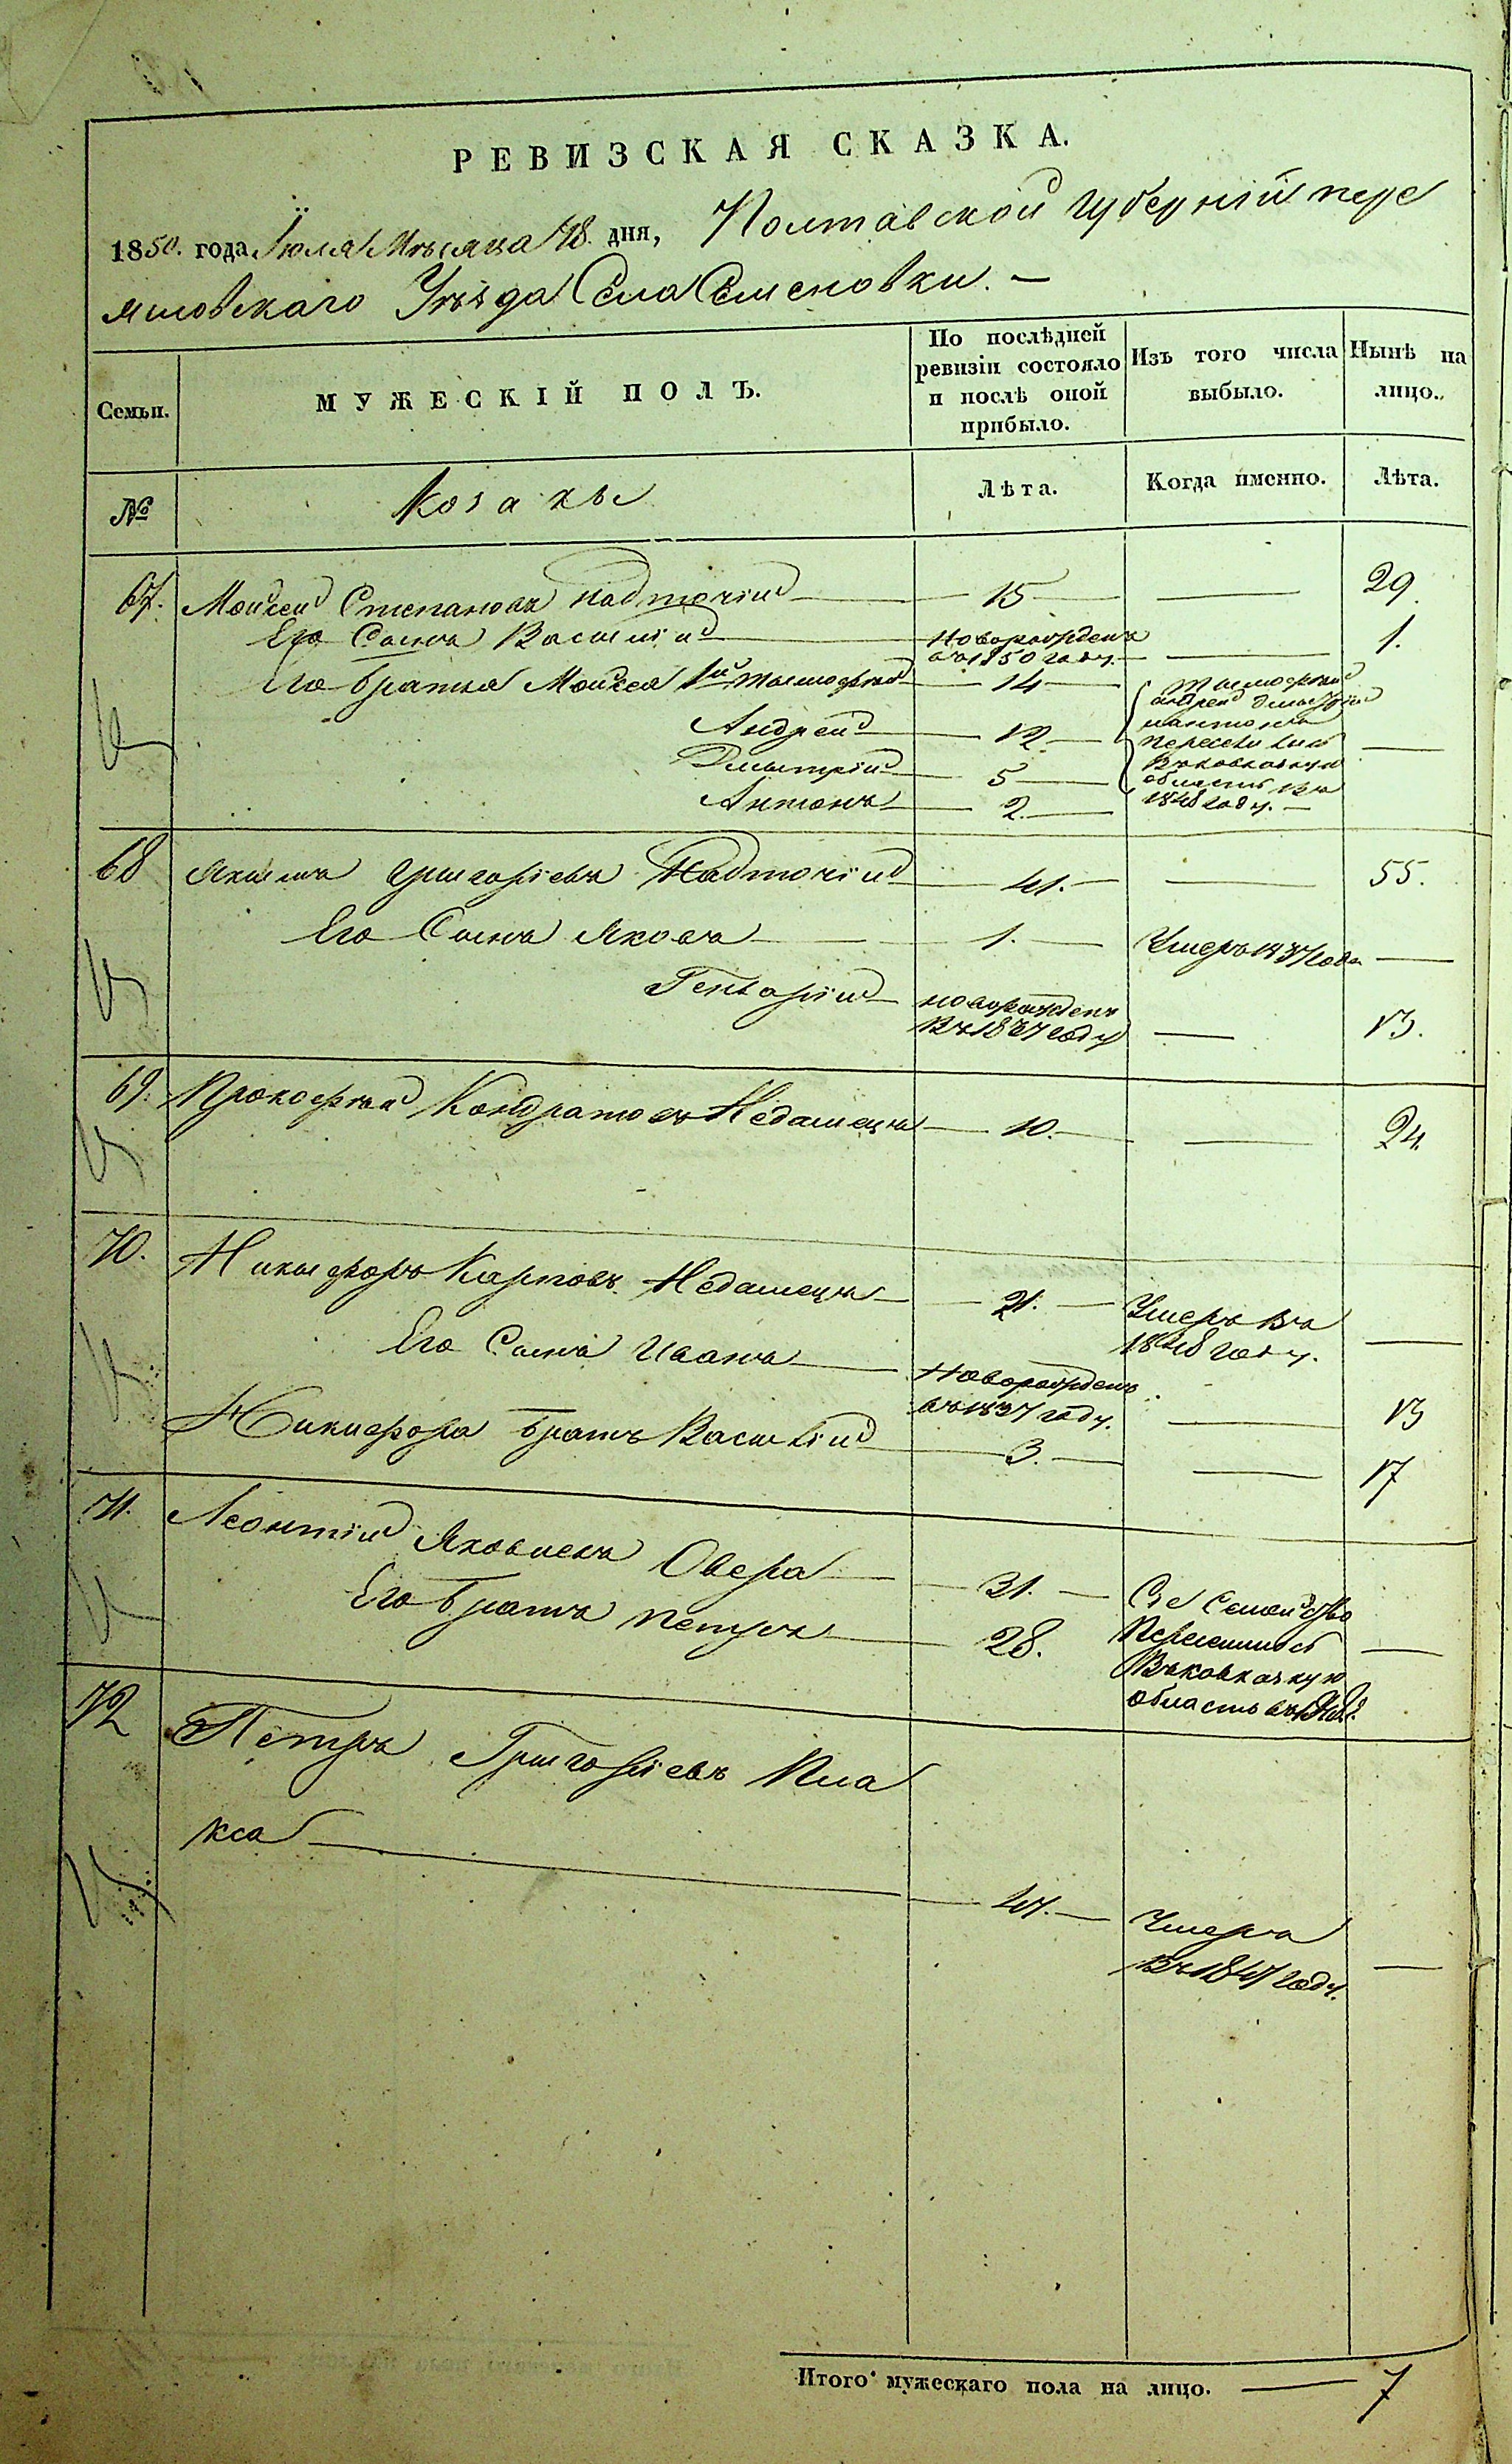 РЕВИЗСКАЯ СКАЗКА.
1850. года Іюля Мѣсяца 18. дня, Полтавской губерній пере
яиовскаго Уѣзда Села Семеновки. —
Семьи.
МУЖЕСКІЙ ПОЛЪ.
По послѣдней ревизіи состояло и послѣ оной прибыло.
Изъ того числа выбыло.
Нынѣ на лицо.
№
Козаки
Лѣта.
Когда именно.
Лѣта.
67. Моисей Степановъ Надточій — 15 — — 29.
Его Сынъ Василій — Новорожденъ — 1.
въ 1850 году.
Его братья Моисея 1й Тымофѣй — 14 — Тымофѣй
Андрей — 12. — андрей дмытрій
иантонъ
Дмытрій — 5 — переселились —
Въкавказкую
Антонъ — 2. — область въ
1848 году. —
68 Якимъ Григоріевъ Надточій — 41. — — 55.
Его Сынъ Яковъ — 1. — Умеръ 1837 года —
Генварій — новорожденъ — 13.
Въ 1837 году
69. Прокофѣй Кондратовъ Недашецъ — 10. — — 24.
70. Никифоръ Карповъ Недашецъ — 21. — Умеръ въ —
1848 году.
Его Сынъ Иванъ — Новорожденъ — 13
въ 1837 году.
Никифора братъ Василій — 3. — — 17
71. Леонтій Яковлевъ Овера — 31. — Сіе Семейство
Его братъ Петръ — 28. Переселилось —
Въкавказкую
область въ
72 Петръ Григоріевъ Пла
кса — 47. — Умеръ —
Въ 1847 году.
Итого мужескаго пола на лицо. — 7